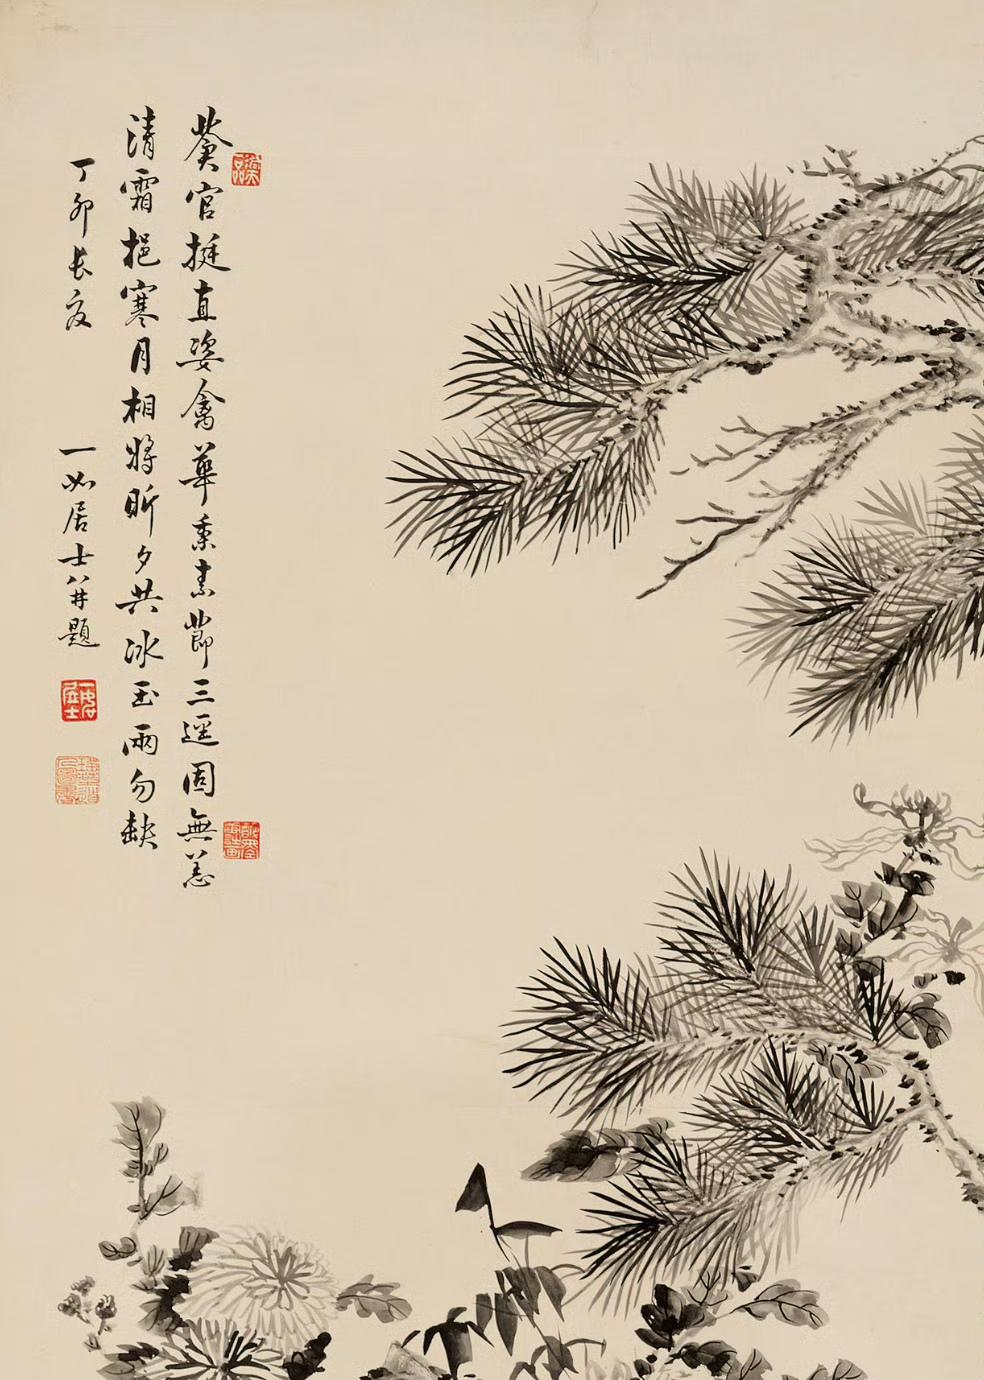 葵官挺直姿禽華秉素節三逕固無恙
清霜挹寒月相將昕夕共冰玉兩勿缺
丁卯長夏
一如居士并題
一如居士